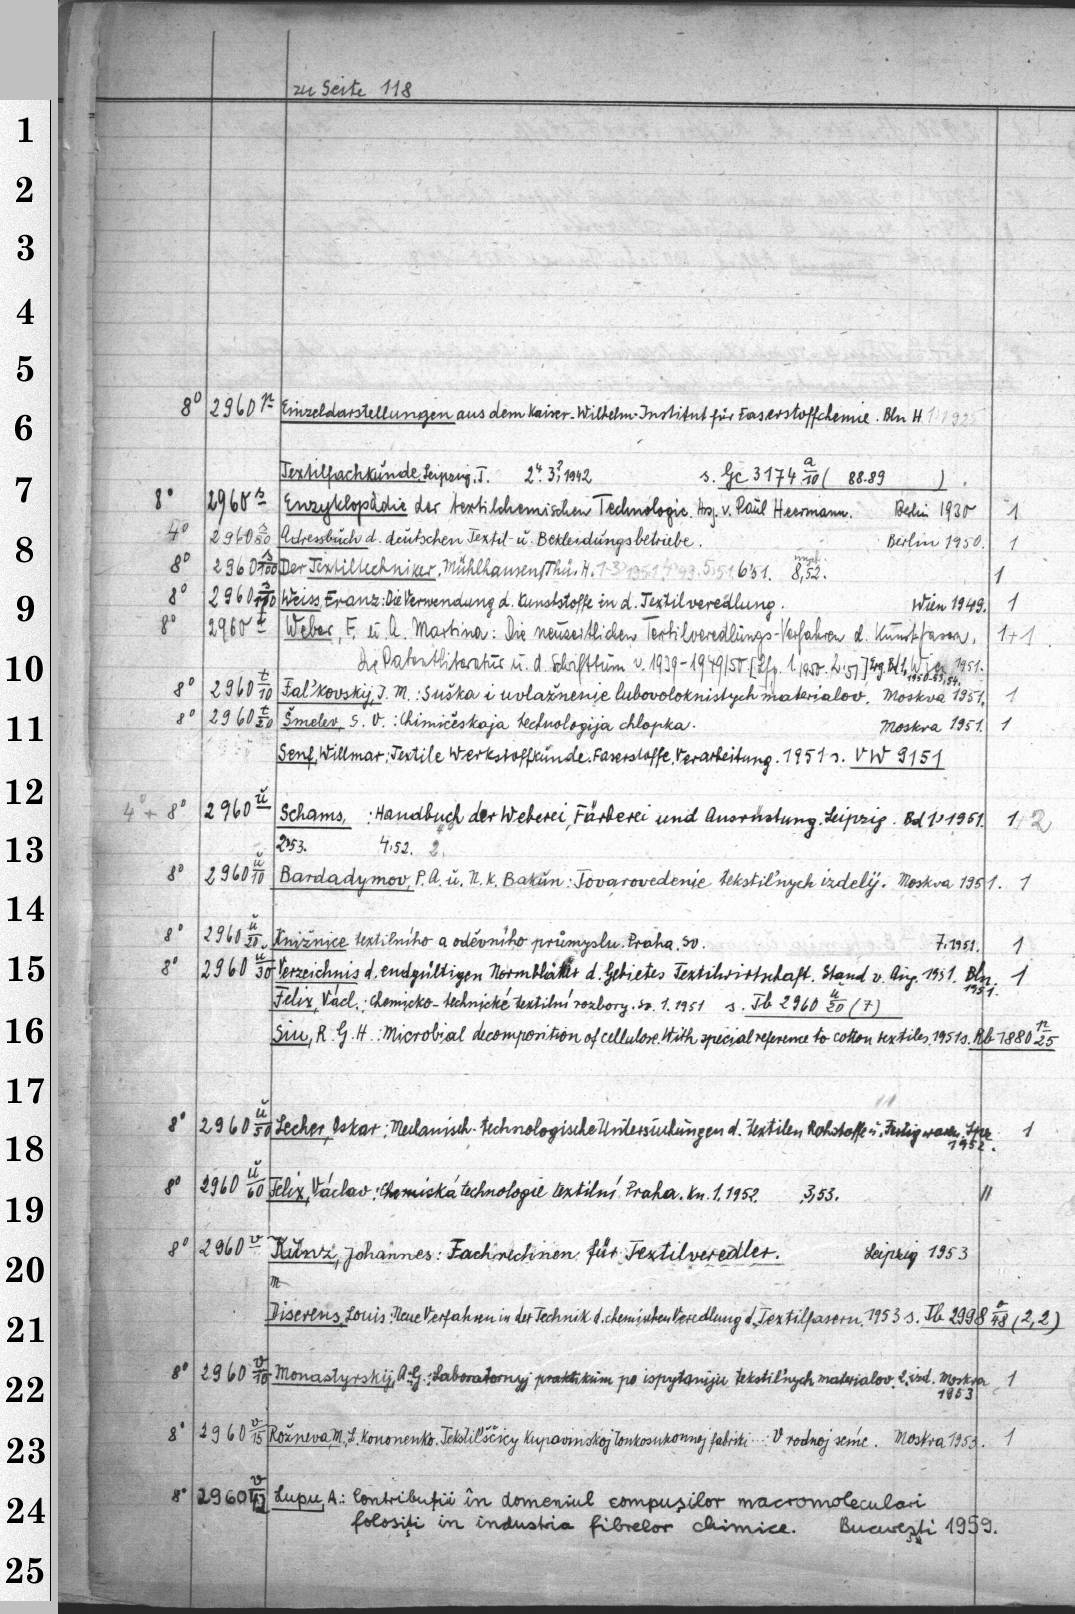 zu Seite 118
1
2
3
4
5
6
7
8
9
10
11
12
13
14
15
16
17
18
19
20
21
22
23
24
25
8° 2960 r Einzeldarstellungen aus dem Kaiser-Wilhelm-Institut für Faserstoffchemie. Bln H 1925
Textilfachkunde. Leipzig. T. 2⁴. 3², 1942 s. Gc 3174 a/10 ( 88.89 ) .
8° 2960 s Enzyklopädie der textilchemischen Technologie. Hrsg. v. Paul Heermann. Berlin 1930 1
4° 2960 s/50 Adressbuch d. deutschen Textil- u. Bekleidungsbetriebe. Berlin 1950. 1
8° 2960 s/100 Der Textiltechniker. Mühlhausen/Thü. H. 6'51. 8,52. 1
8° 2960 Weiss, Franz: Die Verwendung d. Kunststoffe in d. Textilveredlung. Wien 1949. 1
8° 2960 t Weber, F. u. A. Martina: Die neuzeitlichen Textilveredlungs-Verfahren d. Kunstfasern. 1+1
Die Patentliteratur u. d. Schrifttum v. 1939-1949/50 [Lfg. 1.1950. 2.'51] Erg. Bd 1, Wien 1951.
1950-53,54.
8° 2960 t/10 Fal'kovskij, J. M.: Suška i uvlažnenie lubovoloknistych materialov. Moskva 1951. 1
8° 2960 t/20 Šmelev, S. V.: Chimičeskaja technologija chlopka. Moskva 1951. 1
Senf, Willmar: Textile Werkstoffkunde. Faserstoffe, Verarbeitung. 1951 s. VW 9151
4° + 8° 2960 ŭ Schams, : Handbuch der Weberei, Färberei und Ausrüstung. Leipzig. Bd 1, 1951. 1+2
2,53. 4,52. 2.
8° 2960 ŭ/10 Bardadymov, P. A. u. N. K. Bakun: Tovarovedenie tekstil'nych izdelij. Moskva 1951. 1
8° 2960 ŭ/20 Knižnice textilního a oděvního průmyslu. Praha. Sv. 7.1951. 1
8° 2960 ŭ/30 Verzeichnis d. endgültigen Normblätter d. Gebietes Textilwirtschaft. Stand v. Aug. 1951. Bln 1951. 1
Felix, Václ.: Chemicko-technické textilní rozbory. Sv. 1. 1951 s. Tb 2960 ŭ/20 (7)
Siu, R. G. H.: Microbial decomposition of cellulose. With special reference to cotton textiles. 1951 s. Rb 7880 n/25
8° 2960 ŭ/50 Lecher, Oskar: Mechanisch-technologische Untersuchungen d. textilen Rohstoffe u. Fertigwaren. Lpz 1952. 1
8° 2960 ŭ/60 Felix, Václav: Chemická technologie textilní. Praha. Kn. 1. 1952. 3,53. 11
8° 2960 v Kunz, Johannes: Fachrechnen für Textilveredler. Leipzig 1953
m
Diserens, Louis: Neue Verfahren in der Technik d. chemischen Veredlung d. Textilfasern. 1953 s. Tb 2998 v/48 (2,2)
8° 2960 v/10 Monastyrskij, A. G.: Laboratornyj praktikum po ispytaniju tekstil'nych materialov. 2. izd. Moskva 1953 1
8° 2960 v/15 Rožneva, M., L. Kononenko. Tekstil'ščicy Kupavinskoj tonkosukonnoj fabriki... : V rodnoj sem'e. Moskva 1953. 1
8° 2960 v/ Lupu, A.: Contribuţii în domeniul compuşilor macromoleculari
folosiţi în industria fibrelor chimice. Bucureşti 1959.